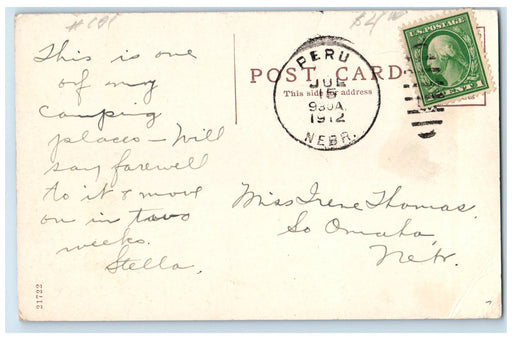 #181
$4.00
This is one
of my
camping
places - Will
say farewell
to it & move
on in two
weeks.
Stella.
21722
POST CARD
This side for address
PERU
JUL
15
930A.
1912
NEBR.
U.S. POSTAGE
CENT 1
Miss Irene Thomas.
So Omaha,
Nebr.